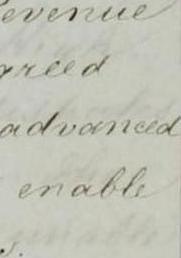 evenue
greed
advanced
enable
s.